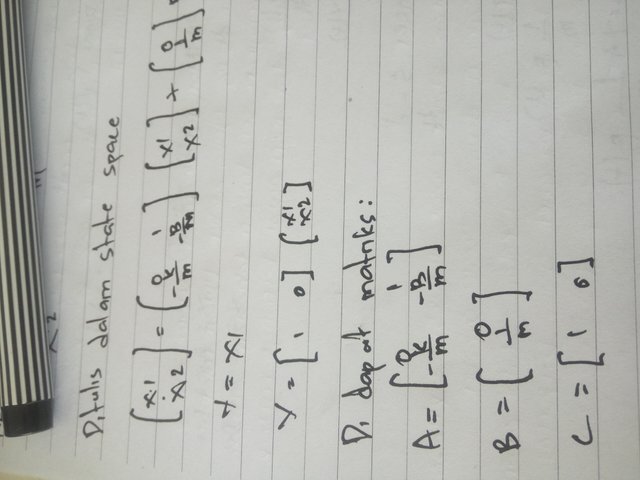 Ditulis dalam state space
[ẋ1 ẋ2] = [0 1 -k/m -B/m] [x1 x2] + [0 1/m]
y = x1
y = [1 0] [x1 x2]
Di dapat matriks:
A = [0 1 -k/m -B/m]
B = [0 1/m]
C = [1 0]